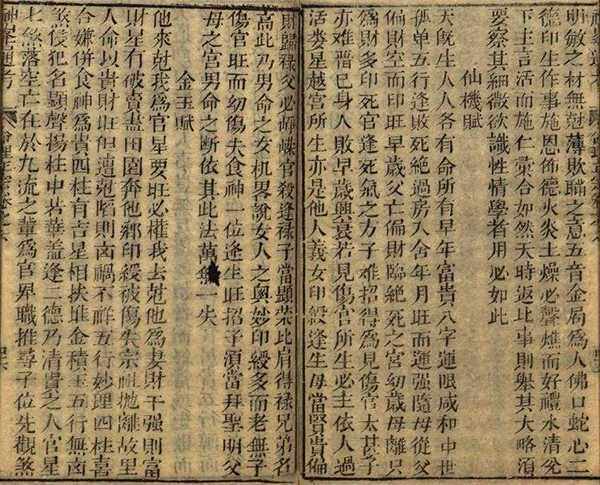 明敏之材無愆薄欺瞞之意五音金局為人佛口蛇心二
德印生作事施恩佈德火炎土燥必聲焦而好禮水清允
下主言活而施仁彙合如然天時返此事則舉其大略須
要察其細微欲識性情學者用必如此
仙機賦
天旣生人人各有命所有早年富貴八字運限咸和中世
孤單五行逢敗死絶過房入舍年月旺而運強隨母從父
偏財空而印旺早歲父亡偏財臨絶死之宮幼歲母離只
為財多印死官逢死氣之方子難招得為見傷官太甚子
亦難留巳身入敗早歲興衰若見傷官所生必主依人過
活婁星越宮所生亦是他人義女印綬逢生母當賢貴偏
財歸祿父必崢嶸官殺逢祿子當顯榮比肩得祿兄弟名
高此乃男命之玄机畧說女人之奧妙印綬多而老無子
傷官旺而幼傷夫食神一位逢生旺招子須當拜聖明父
母之宮男命之斷依其此法萬無一失
金玉賦
他來尅我為官星要旺必權我去尅他為妻財干强則富
財星有破賣盡田園奔他鄉印綬被傷失宗祖抛離故里
人命以貴財旺但遭尅陷則囟禍不祥五行妙理四柱喜
合嫌併食神為貴四柱有吉星相扶堆金積玉五行無囟
煞侵犯名顯聲揚柱中若華盖逢二德乃清貴之人官星
七煞落空亡在於九流之輩為官畀職推尋子位先觀煞
神峯通考